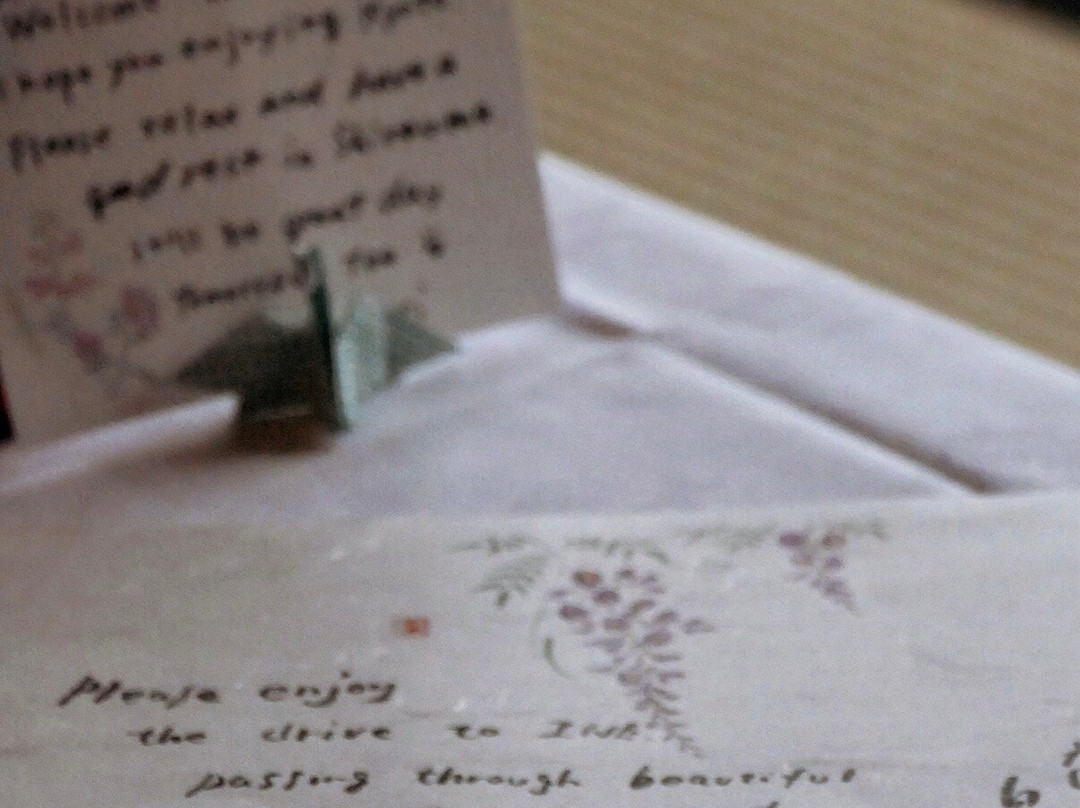 Welcome
I hope you enjoying
Please relax and have a
good rest in
will be great day
for
Please enjoy
the drive to INE
passing through beautiful